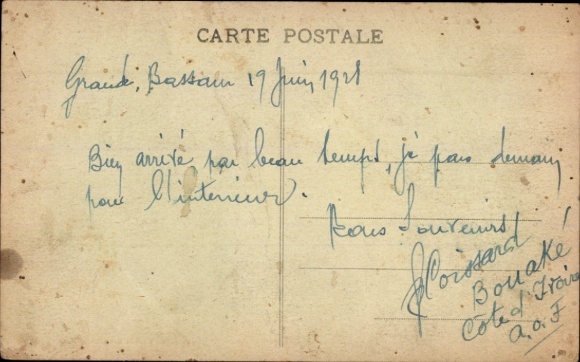 CARTE POSTALE
Grand, Bassam 19 Juin 1921
Bien arrivé par beau temps, je pars demain
pour l'interieur.
Bons Souvenirs
Poissard
Bouaké
Côte d'Ivoire
A.O.F